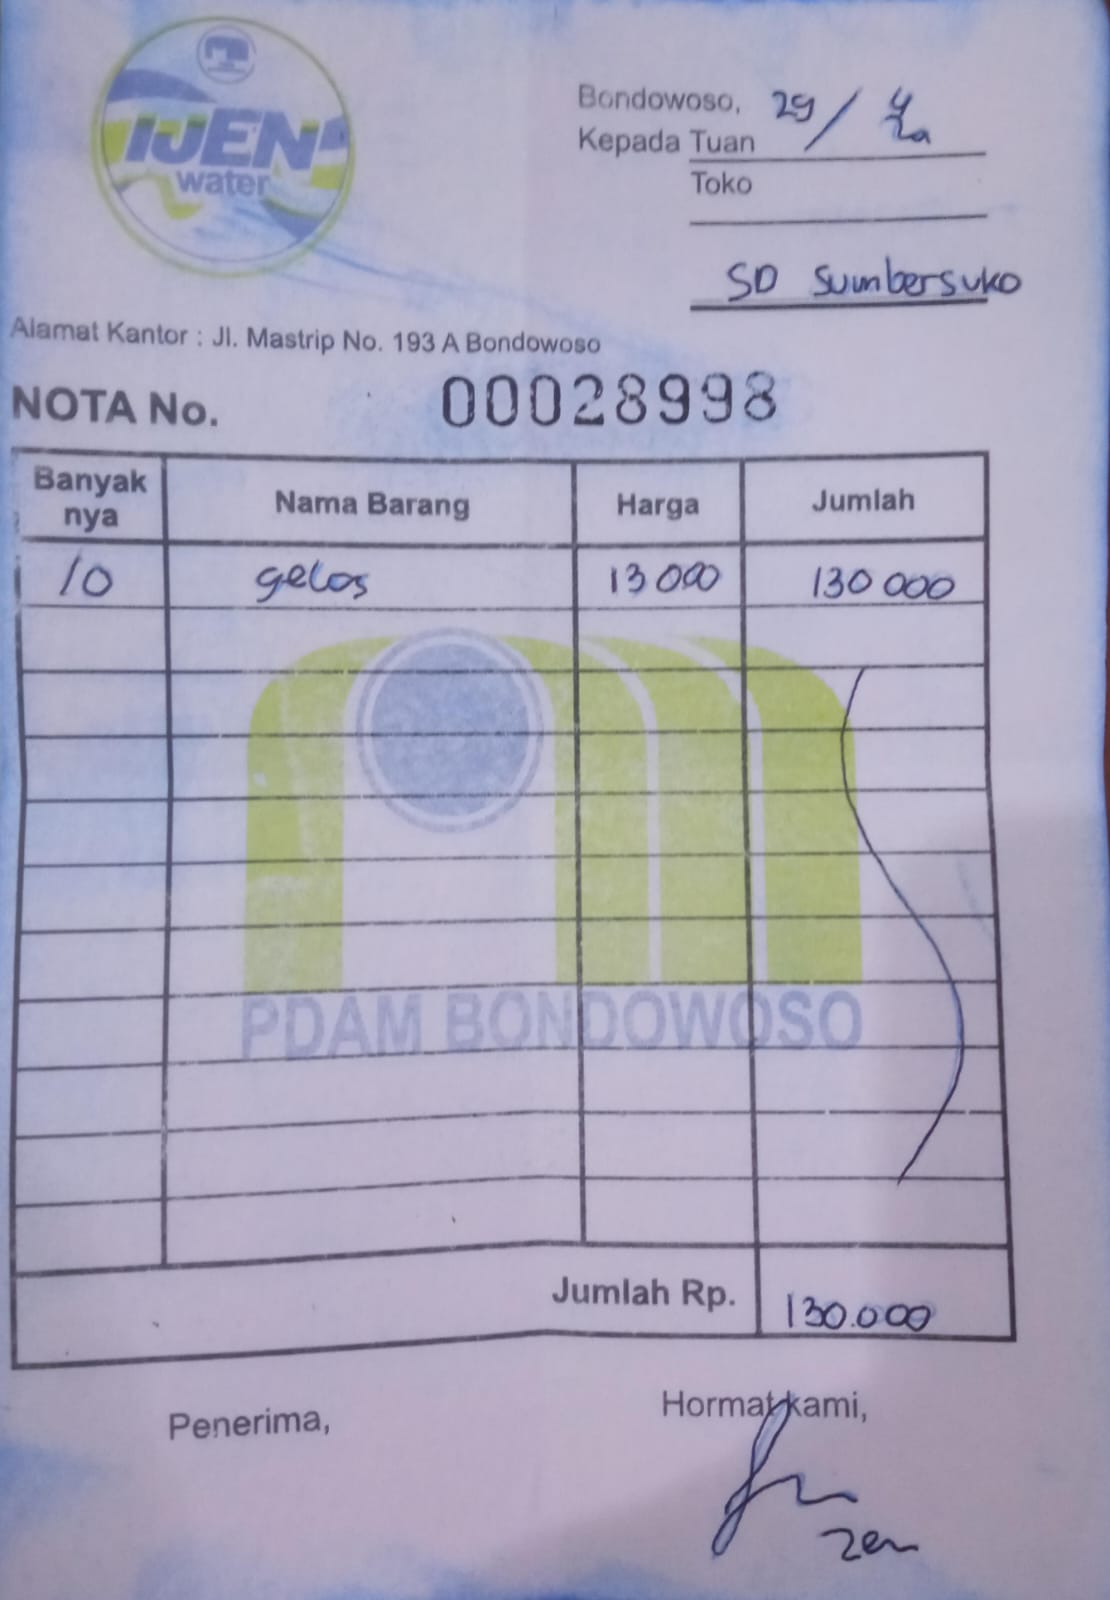 IJEN
water
Bondowoso, 29 /
Kepada Tuan
Toko
SD Sumbersuko
Alamat Kantor : Jl. Mastrip No. 193 A Bondowoso
NOTA No. 00028998
Banyak nya Nama Barang Harga Jumlah
10 gelas 13 000 130 000
PDAM BONDOWOSO
Jumlah Rp. 130.000
Penerima, Hormat kami,